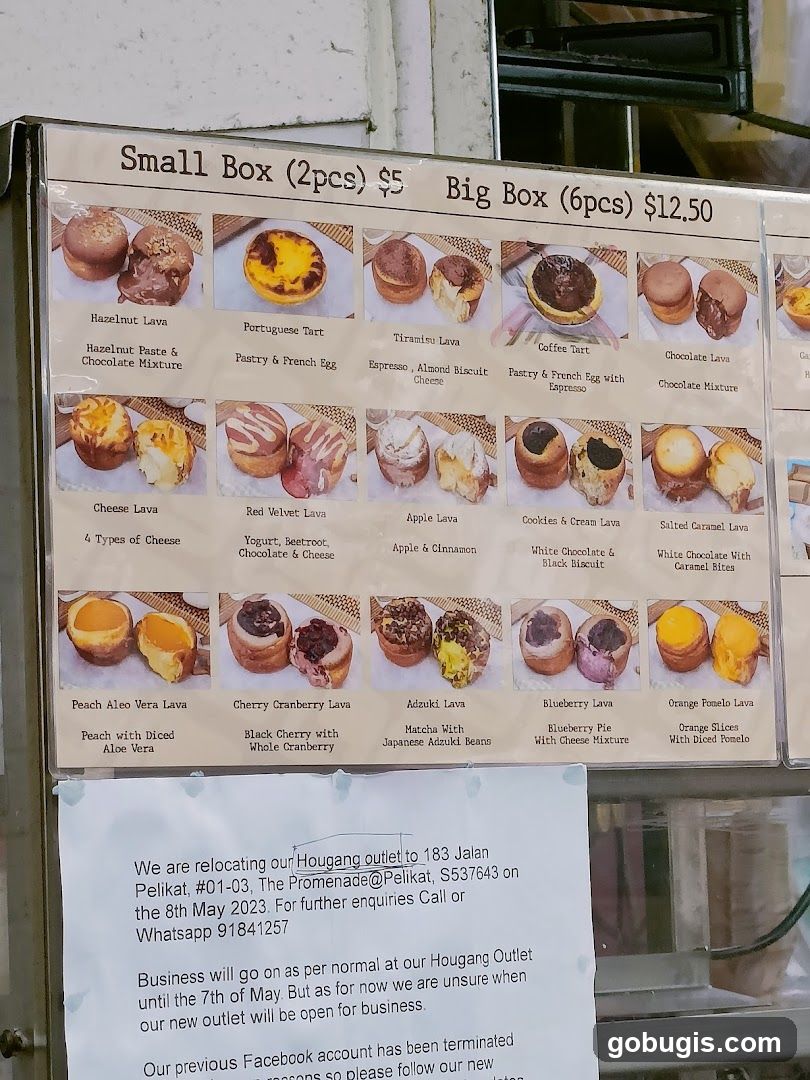 Small Box (2pcs) $5 Big Box (6pcs) $12.50
Hazelnut Lava
Hazelnut Paste &
Chocolate Mixture
Portuguese Tart
Pastry & French Egg
Tiramisu Lava
Espresso , Almond Biscuit
Cheese
Coffee Tart
Pastry & French Egg with
Espresso
Chocolate Lava
Chocolate Mixture
Cheese Lava
4 Types of Cheese
Red Velvet Lava
Yogurt, Beetroot,
Chocolate & Cheese
Apple Lava
Apple & Cinnamon
Cookies & Cream Lava
White Chocolate &
Black Biscuit
Salted Caramel Lava
White Chocolate With
Caramel Bites
Peach Aleo Vera Lava
Peach with Diced
Aloe Vera
Cherry Cranberry Lava
Black Cherry with
Whole Cranberry
Adzuki Lava
Matcha With
Japanese Adzuki Beans
Blueberry Lava
Blueberry Pie
With Cheese Mixture
Orange Pomelo Lava
Orange Slices
With Diced Pomelo
We are relocating our Hougang outlet to 183 Jalan
Pelikat, #01-03, The Promenade@Pelikat, S537643 on
the 8th May 2023. For further enquiries Call or
Whatsapp 91841257
Business will go on as per normal at our Hougang Outlet
until the 7th of May. But as for now we are unsure when
our new outlet will be open for business.
Our previous Facebook account has been terminated
so please follow our new
gobugis.com